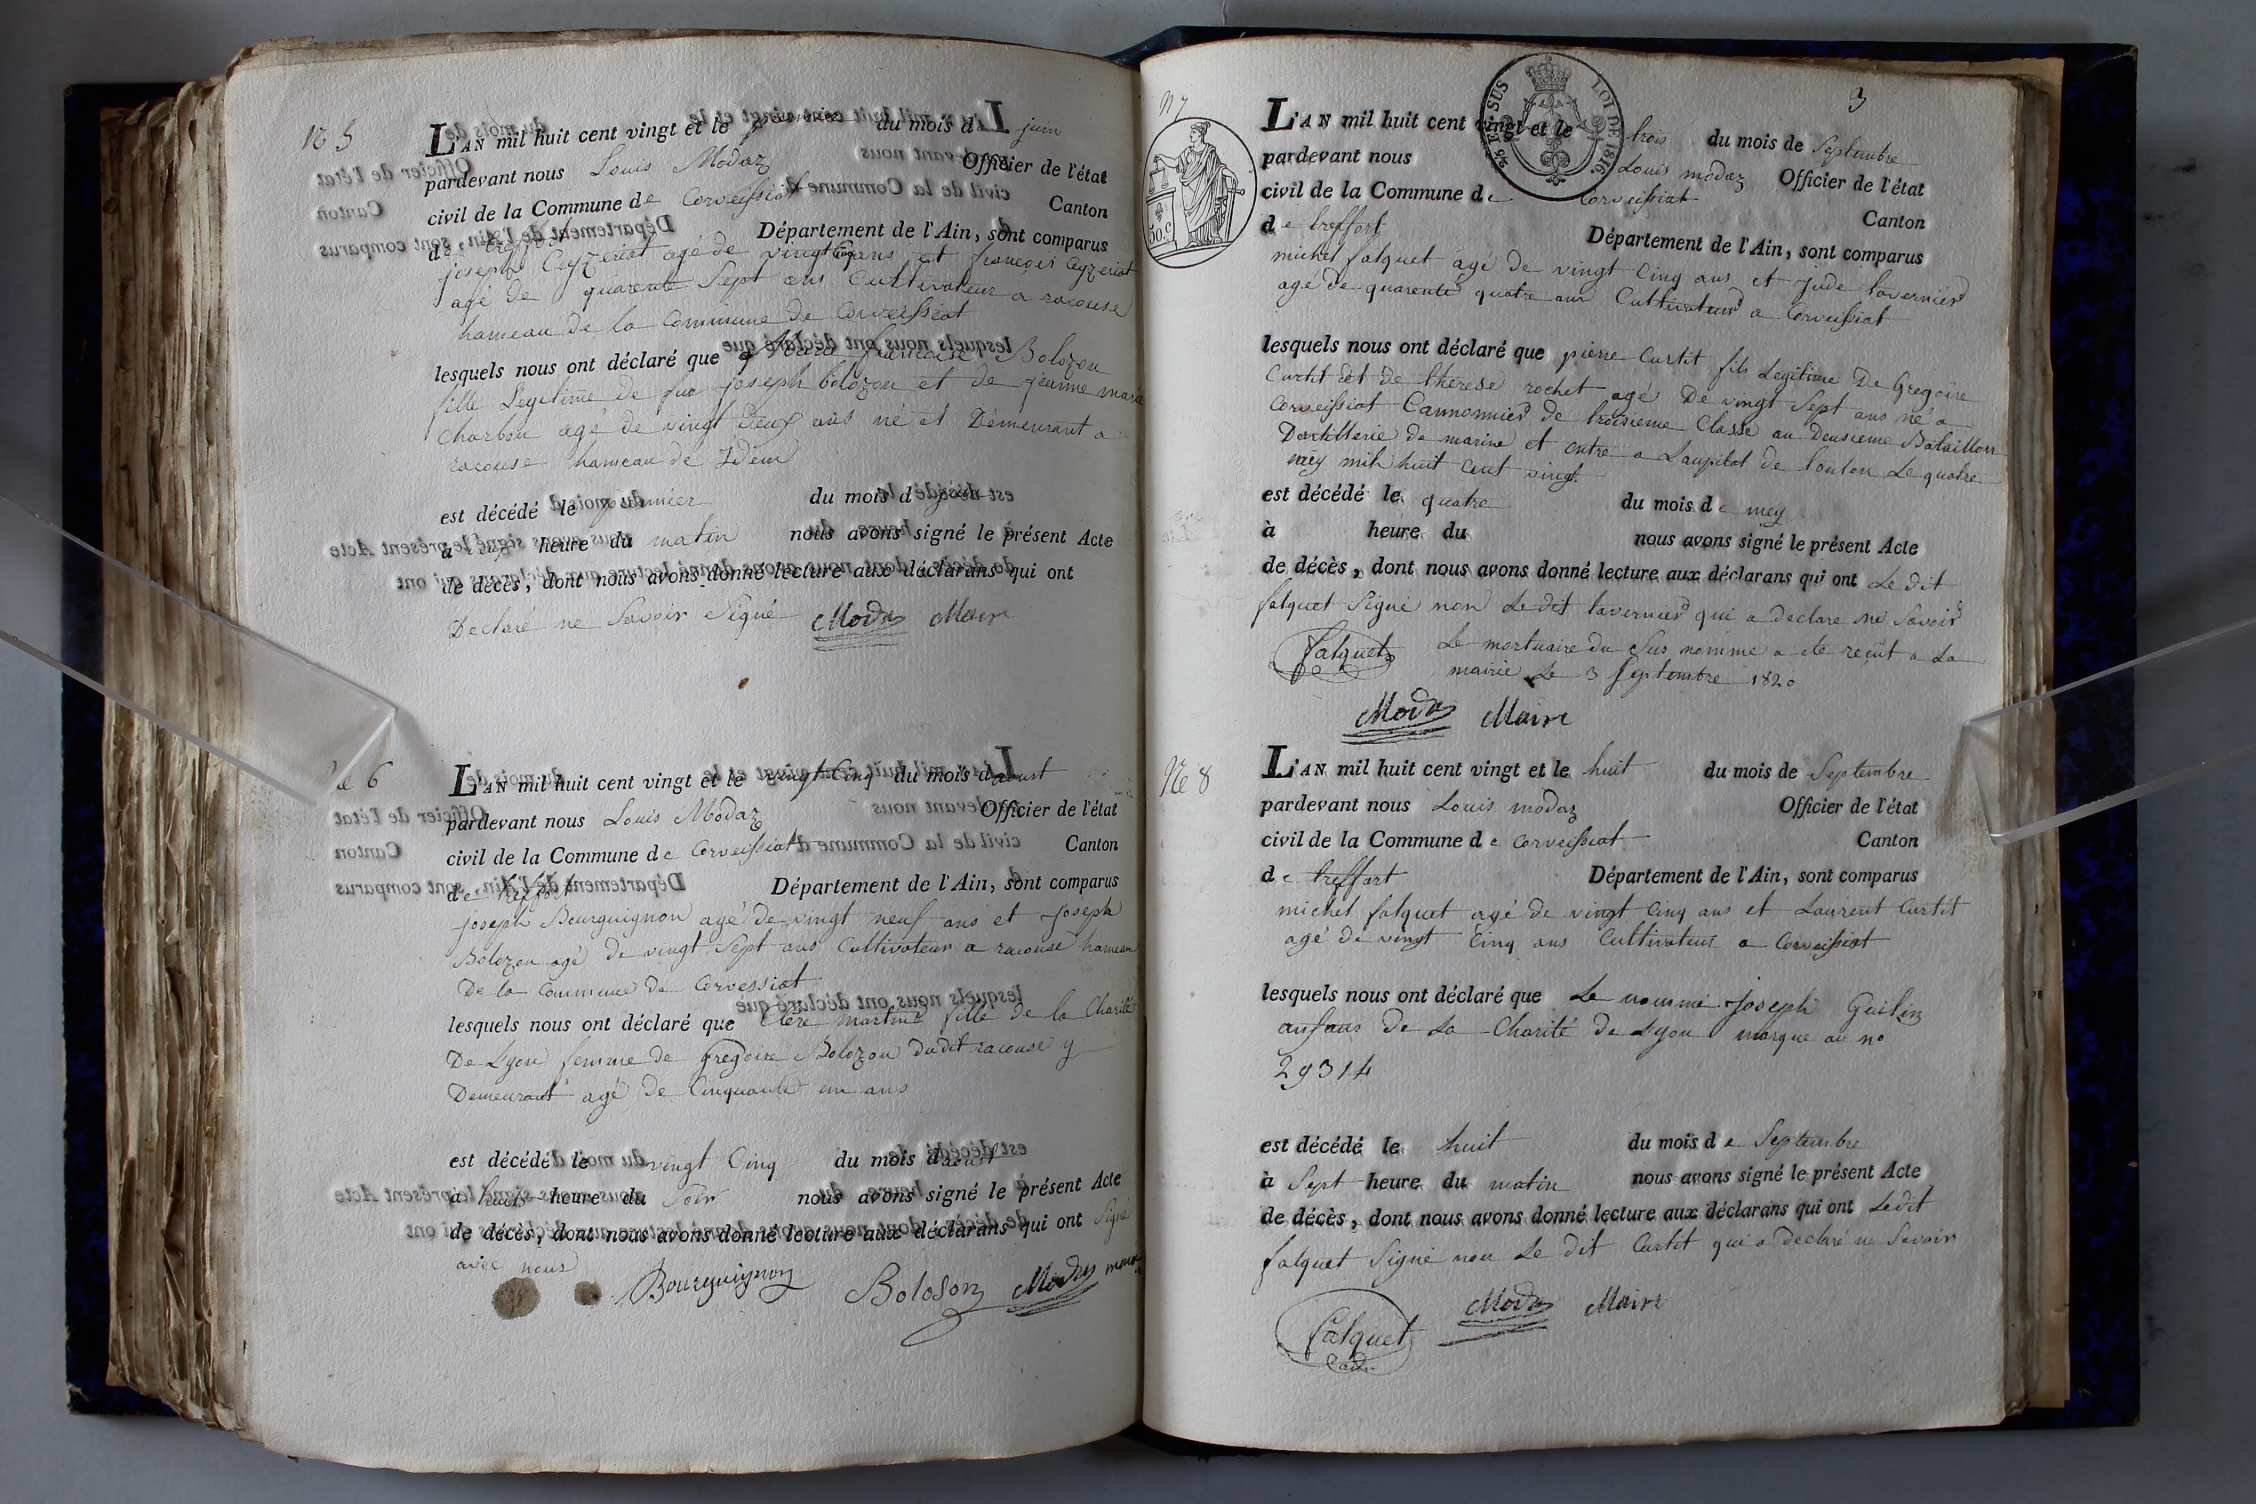 N 5
L'AN mil huit cent vingt et le premier du mois d juin
pardevant nous Louis Modaz Officier de l'état
civil de la Commune de Corveissiat Canton
de treffort Département de l'Ain, sont comparus
joseph Ceyzeriat agé de vingt cinq ans et francois Ceyzeriat
agé de quarente Sept ans Cultivateur a racouse
hameau de la Commune de Corveissiat
lesquels nous ont déclaré que Marie francoise Bolozon
fille Legitime de feu joseph bolozon et de jeanne marie
Charbon agé de vingt ans né et Demeurant a
racouse hameau de Idem
est décédé le premier du mois d juin
à heure du matin nous avons signé le présent Acte
de décès, dont nous avons donné lecture aux déclarans qui ont
Declaré ne Savoir Signé Modaz Maire
6
L'AN mil huit cent vingt et le vingt Cinq du mois daoust
pardevant nous Louis Modaz Officier de l'état
civil de la Commune de Corveissiat Canton
de treffort Département de l'Ain, sont comparus
joseph Bourguignon agé de vingt neuf ans et joseph
Bolozon agé de vingt Sept ans Cultivateur a racouse hameau
De la Commune de Corvessiat
lesquels nous ont déclaré que Clere martine fille de la Charité
De Lyon femme de gregoire Bolozon dudit racouse y
Demeurant agé de Cinquante un ans
est décédé le vingt Cinq du mois daoust
à huit heure du Soir nous avons signé le présent Acte
de décès, dont nous avons donné lecture aux déclarans qui ont Signé
avec nous
Bourguignon Boloson Modaz maire
3
N 7
50.c
25 EN SUS LOI DE 1816.
L'AN mil huit cent vingt et le trois du mois de Septembre
pardevant nous Louis modaz Officier de l'état
civil de la Commune de Corveissiat Canton
de treffort Département de l'Ain, sont comparus
michel falquet agé de vingt Cinq ans et jude tavernier
agé de quarente quatre ans Cultivateur a Corveissiat
lesquels nous ont déclaré que pierre Curtit fils Legitime De Gregoire
Curtit et de therese rochet agé De vingt Sept ans né a
Corveissiat Cannonnier de troisieme Classe au Deusieme Bataillon
Dartillerie de marine et entre a Laupital de toulon Le quatre
mey mil huit cent vingt
est décédé le quatre du mois de mey
à heure du nous avons signé le présent Acte
de décès, dont nous avons donné lecture aux déclarans qui ont Le dit
falquet Signé non Ledit tavernier qui a declare ne Savoir
falquet Le mortuaire du Sus nomme a ete reçut a La
mairie Le 3 Septembre 1820
Modaz Maire
No 8
L'AN mil huit cent vingt et le huit du mois de Septembre
pardevant nous Louis modaz Officier de l'état
civil de la Commune de Corveissiat Canton
de treffort Département de l'Ain, sont comparus
michel falquet agé de vingt Cinq ans et Laurent Curtit
agé de vingt Cinq ans Cultivateur a Corveissiat
lesquels nous ont déclaré que Le nommé Joseph Guelin
anfans de La Charité de Lyon marque au no
29314
est décédé le huit du mois de Septembre
à Sept heure du matin nous avons signé le présent Acte
de décès, dont nous avons donné lecture aux déclarans qui ont Ledit
falquet Signé non Le dit Curtit qui a declaré ne Savoir
falquet Modaz Maire